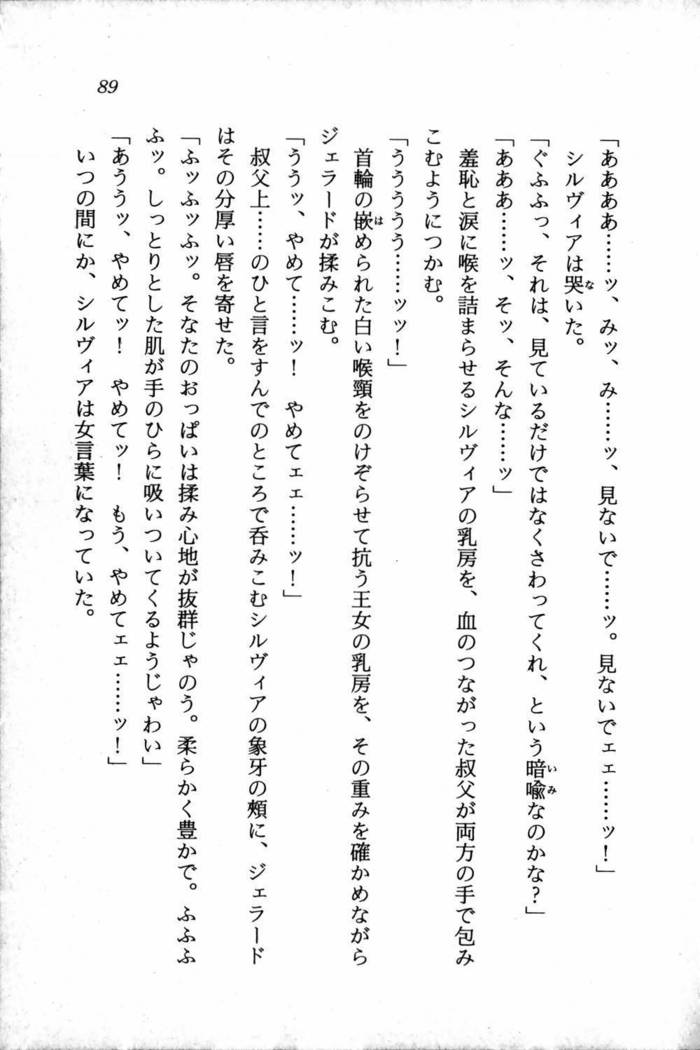 89
「ああああ……ッ、みッ、み……ッ、見ないで……ッ。見ないでェェ……ッ!」
シルヴィアは哭いた。
「ぐふふっ、それは、見ているだけではなくさわってくれ、という暗喩なのかな?」
「あああ……ッ、そッ、そんな……ッ」
羞恥と涙に喉を詰まらせるシルヴィアの乳房を、血のつながった叔父が両方の手で包み
こむようにつかむ。
「ううううう……ッッ!」
首輪の嵌められた白い喉頸をのけぞらせて抗う王女の乳房を、その重みを確かめながら
ジェラードが揉みこむ。
「ううッ、やめて……ッ! やめてェェ……ッ!」
叔父上……のひと言をすんでのところで呑みこむシルヴィアの象牙の頰に、ジェラード
はその分厚い唇を寄せた。
「ふッふッふッ。そなたのおっぱいは揉み心地が抜群じゃのう。柔らかく豊かで。ふふふ
ふッ。しっとりとした肌が手のひらに吸いついてくるようじゃわい」
「あううッ、やめてッ! やめてッ! もう、やめてェェ……ッ!」
いつの間にか、シルヴィアは女言葉になっていた。